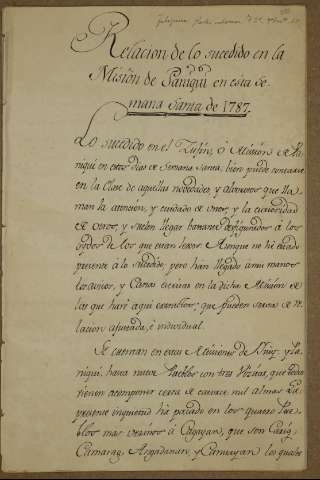 Relacion de lo sucedido en la
Mision de Paniqui en esta Se-
mana Santa de 1787.
Lo sucedido en el Ytuy, ó Mision de Pa-
niqui en estos dias de Semana Santa, bien puede contarse
en la Clase de aquellas novedades, y alborotos que lla-
man la atencion, y cuidado de unos, y la curiosidad
de otros, y suelen llegar bastante desfigurados á los
de los que estan lexos. Aunque no hé estado
presente á lo sucedido, pero han llegado á mis manos
los avisos, y Cartas escritas en la dicha Mision de
las que haré aqui extracto, que pueden servir de Re-
lacion ajustada, é individual.
Se cuentan en estas Misiones de Ytuy, y Pa-
niqui, hasta nueve Pueblos con tres Visitas, que podra
tienen acomponer cerca de catorce mil almas. La
presente inquietud ha pasado en los quatro Pue-
blos mas vecinos á Cagayan, que son Carig,
Camarag, Angadanan, y Cauayan los quales